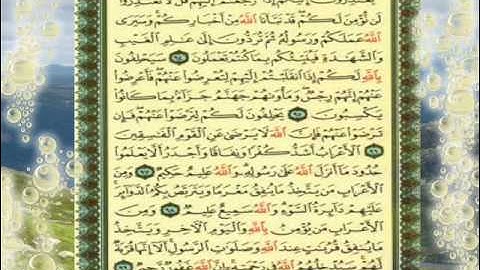 يَعْتَذِرُونَ إِلَيْكُمْ إِذَا رَجَعْتُمْ إِلَيْهِمْ قُل لَّا تَعْتَذِرُوا۟
لَن نُّؤْمِنَ لَكُمْ قَدْ نَبَّأَنَا ٱللَّهُ مِنْ أَخْبَارِكُمْ وَسَيَرَى
ٱللَّهُ عَمَلَكُمْ وَرَسُولُهُۥ ثُمَّ تُرَدُّونَ إِلَىٰ عَٰلِمِ ٱلْغَيْبِ
وَٱلشَّهَٰدَةِ فَيُنَبِّئُكُم بِمَا كُنتُمْ تَعْمَلُونَ ٩٤ سَيَحْلِفُونَ
بِٱللَّهِ لَكُمْ إِذَا ٱنقَلَبْتُمْ إِلَيْهِمْ لِتُعْرِضُوا۟ عَنْهُمْ فَأَعْرِضُوا۟
عَنْهُمْ إِنَّهُمْ رِجْسٌ وَمَأْوَىٰهُمْ جَهَنَّمُ جَزَآءًۢ بِمَا كَانُوا۟
يَكْسِبُونَ ٩٥ يَحْلِفُونَ لَكُمْ لِتَرْضَوْا۟ عَنْهُمْ فَإِن
تَرْضَوْا۟ عَنْهُمْ فَإِنَّ ٱللَّهَ لَا يَرْضَىٰ عَنِ ٱلْقَوْمِ ٱلْفَٰسِقِينَ
٩٦ ٱلْأَعْرَابُ أَشَدُّ كُفْرًا وَنِفَاقًا وَأَجْدَرُ أَلَّا يَعْلَمُوا۟
حُدُودَ مَآ أَنزَلَ ٱللَّهُ عَلَىٰ رَسُولِهِۦ وَٱللَّهُ عَلِيمٌ حَكِيمٌ ٩٧ وَمِنَ
ٱلْأَعْرَابِ مَن يَتَّخِذُ مَا يُنفِقُ مَغْرَمًا وَيَتَرَبَّصُ بِكُمُ ٱلدَّوَآئِرَ
عَلَيْهِمْ دَآئِرَةُ ٱلسَّوْءِ وَٱللَّهُ سَمِيعٌ عَلِيمٌ ٩٨ وَمِنَ
ٱلْأَعْرَابِ مَن يُؤْمِنُ بِٱللَّهِ وَٱلْيَوْمِ ٱلْءَاخِرِ وَيَتَّخِذُ
مَا يُنفِقُ قُرُبَٰتٍ عِندَ ٱللَّهِ وَصَلَوَٰتِ ٱلرَّسُولِ أَلَآ إِنَّهَا قُرْبَةٌ
لَّهُمْ سَيُدْخِلُهُمُ ٱللَّهُ فِى رَحْمَتِهِۦٓ إِنَّ ٱللَّهَ غَفُورٌ رَّحِيمٌ ٩٩